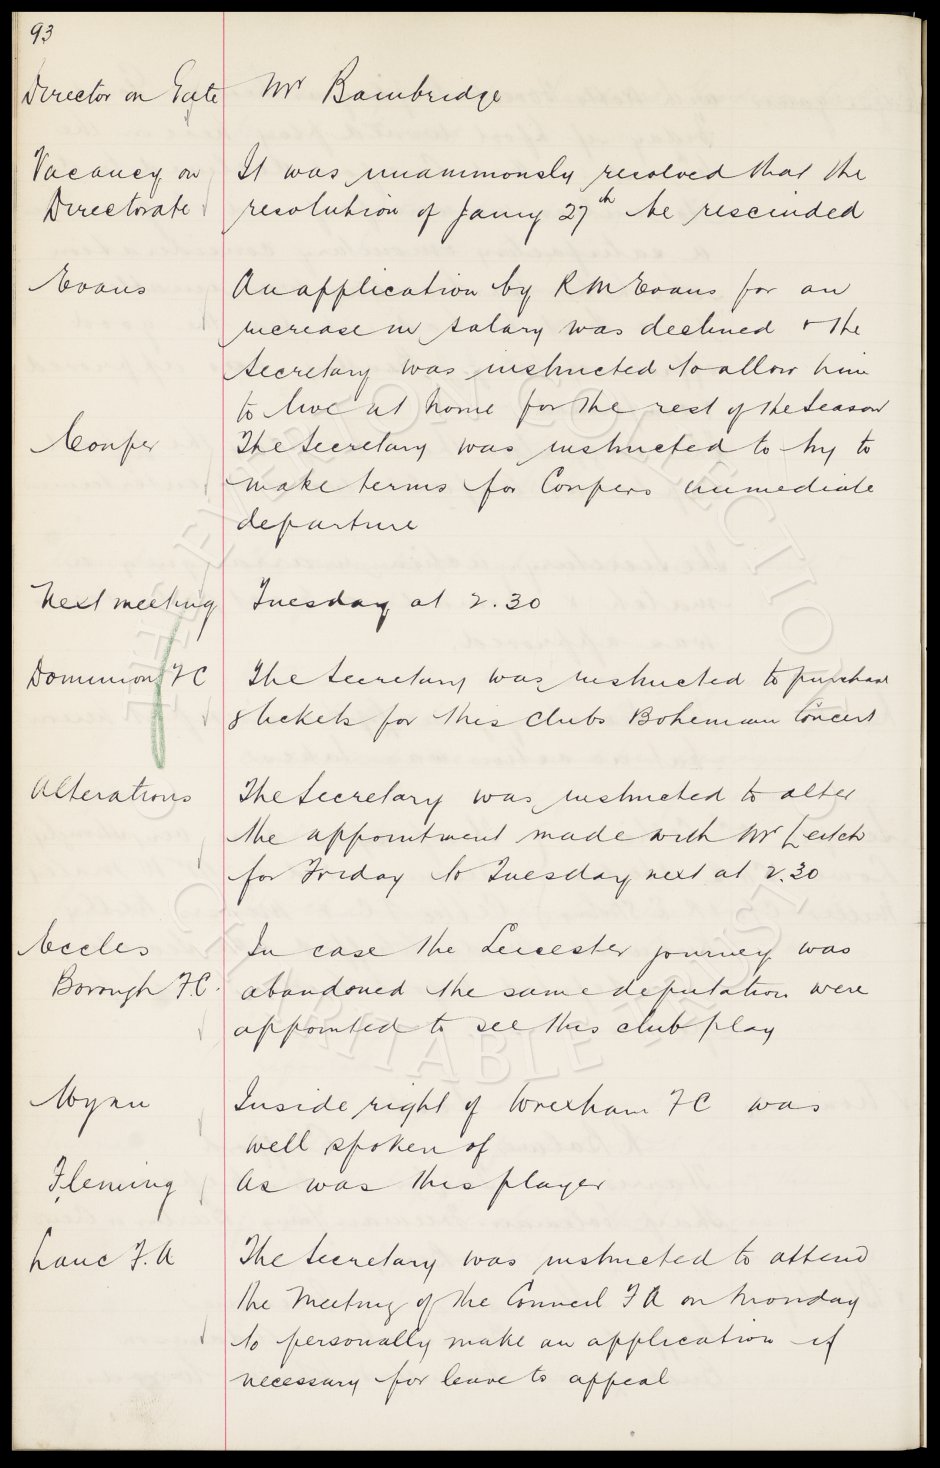 93
Director on Gate Mr Bambridge
Vacancy on It was unanimously resolved that the
Directorate resolution of Jany 27th be rescinded
Evans An application by R M Evans for an
increase in salary was declined & the
Secretary was instructed to allow him
to live at home for the rest of the Season
Couper The Secretary was instructed to try to
make terms for Coupers immediate
departure
Next meeting Tuesday at 2.30
Dominion FC The Secretary was instructed to purchase
8 tickets for this clubs Bohemian Concert
Alterations The Secretary was instructed to alter
the appointment made with Mr Leitch
for Friday to Tuesday next at 2.30
Eccles In case the Leicester journey was
Borough F.C. abandoned the same deputation were
appointed to see this club play
Wynn Inside right of Wrexham FC was
well spoken of
Fleming As was this player
Lanc F.A The Secretary was instructed to attend
the Meeting of the Council F A on Monday
to personally make an application if
necessary for leave to appeal
THE EVERTON COLLECTION
CHARITABLE TRUST